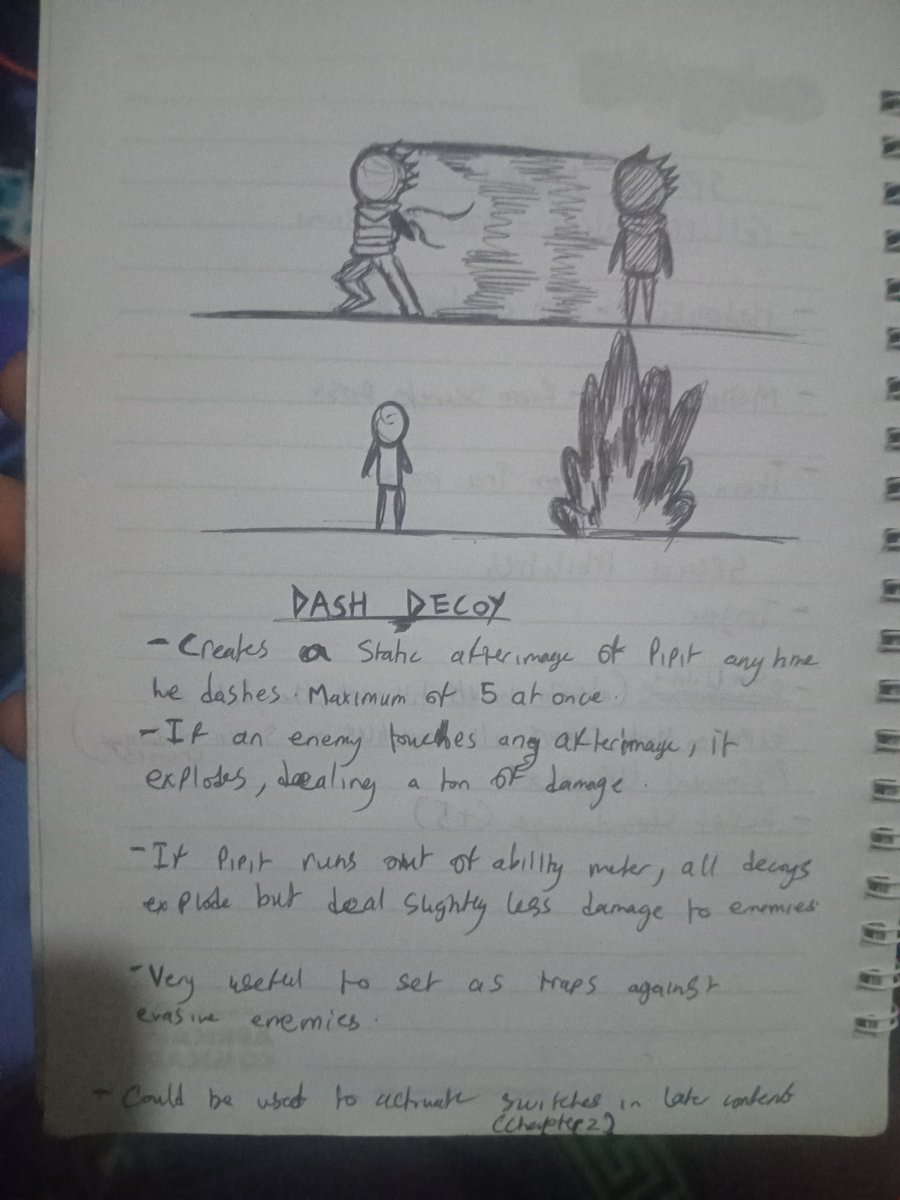 DASH DECOY
- Creates a static afterimage of Pipit anytime
he dashes Maximum of 5 at once.
- If an enemy touches any afterimage, it
explodes, dealing a ton of damage.
- If Pipit runs out of ability meter, all decoys
explode but deal slightly less damage to enemies.
- Very useful to set as traps against
evasive enemies.
- Could be used to activate switches in later content
(Chapter 2)